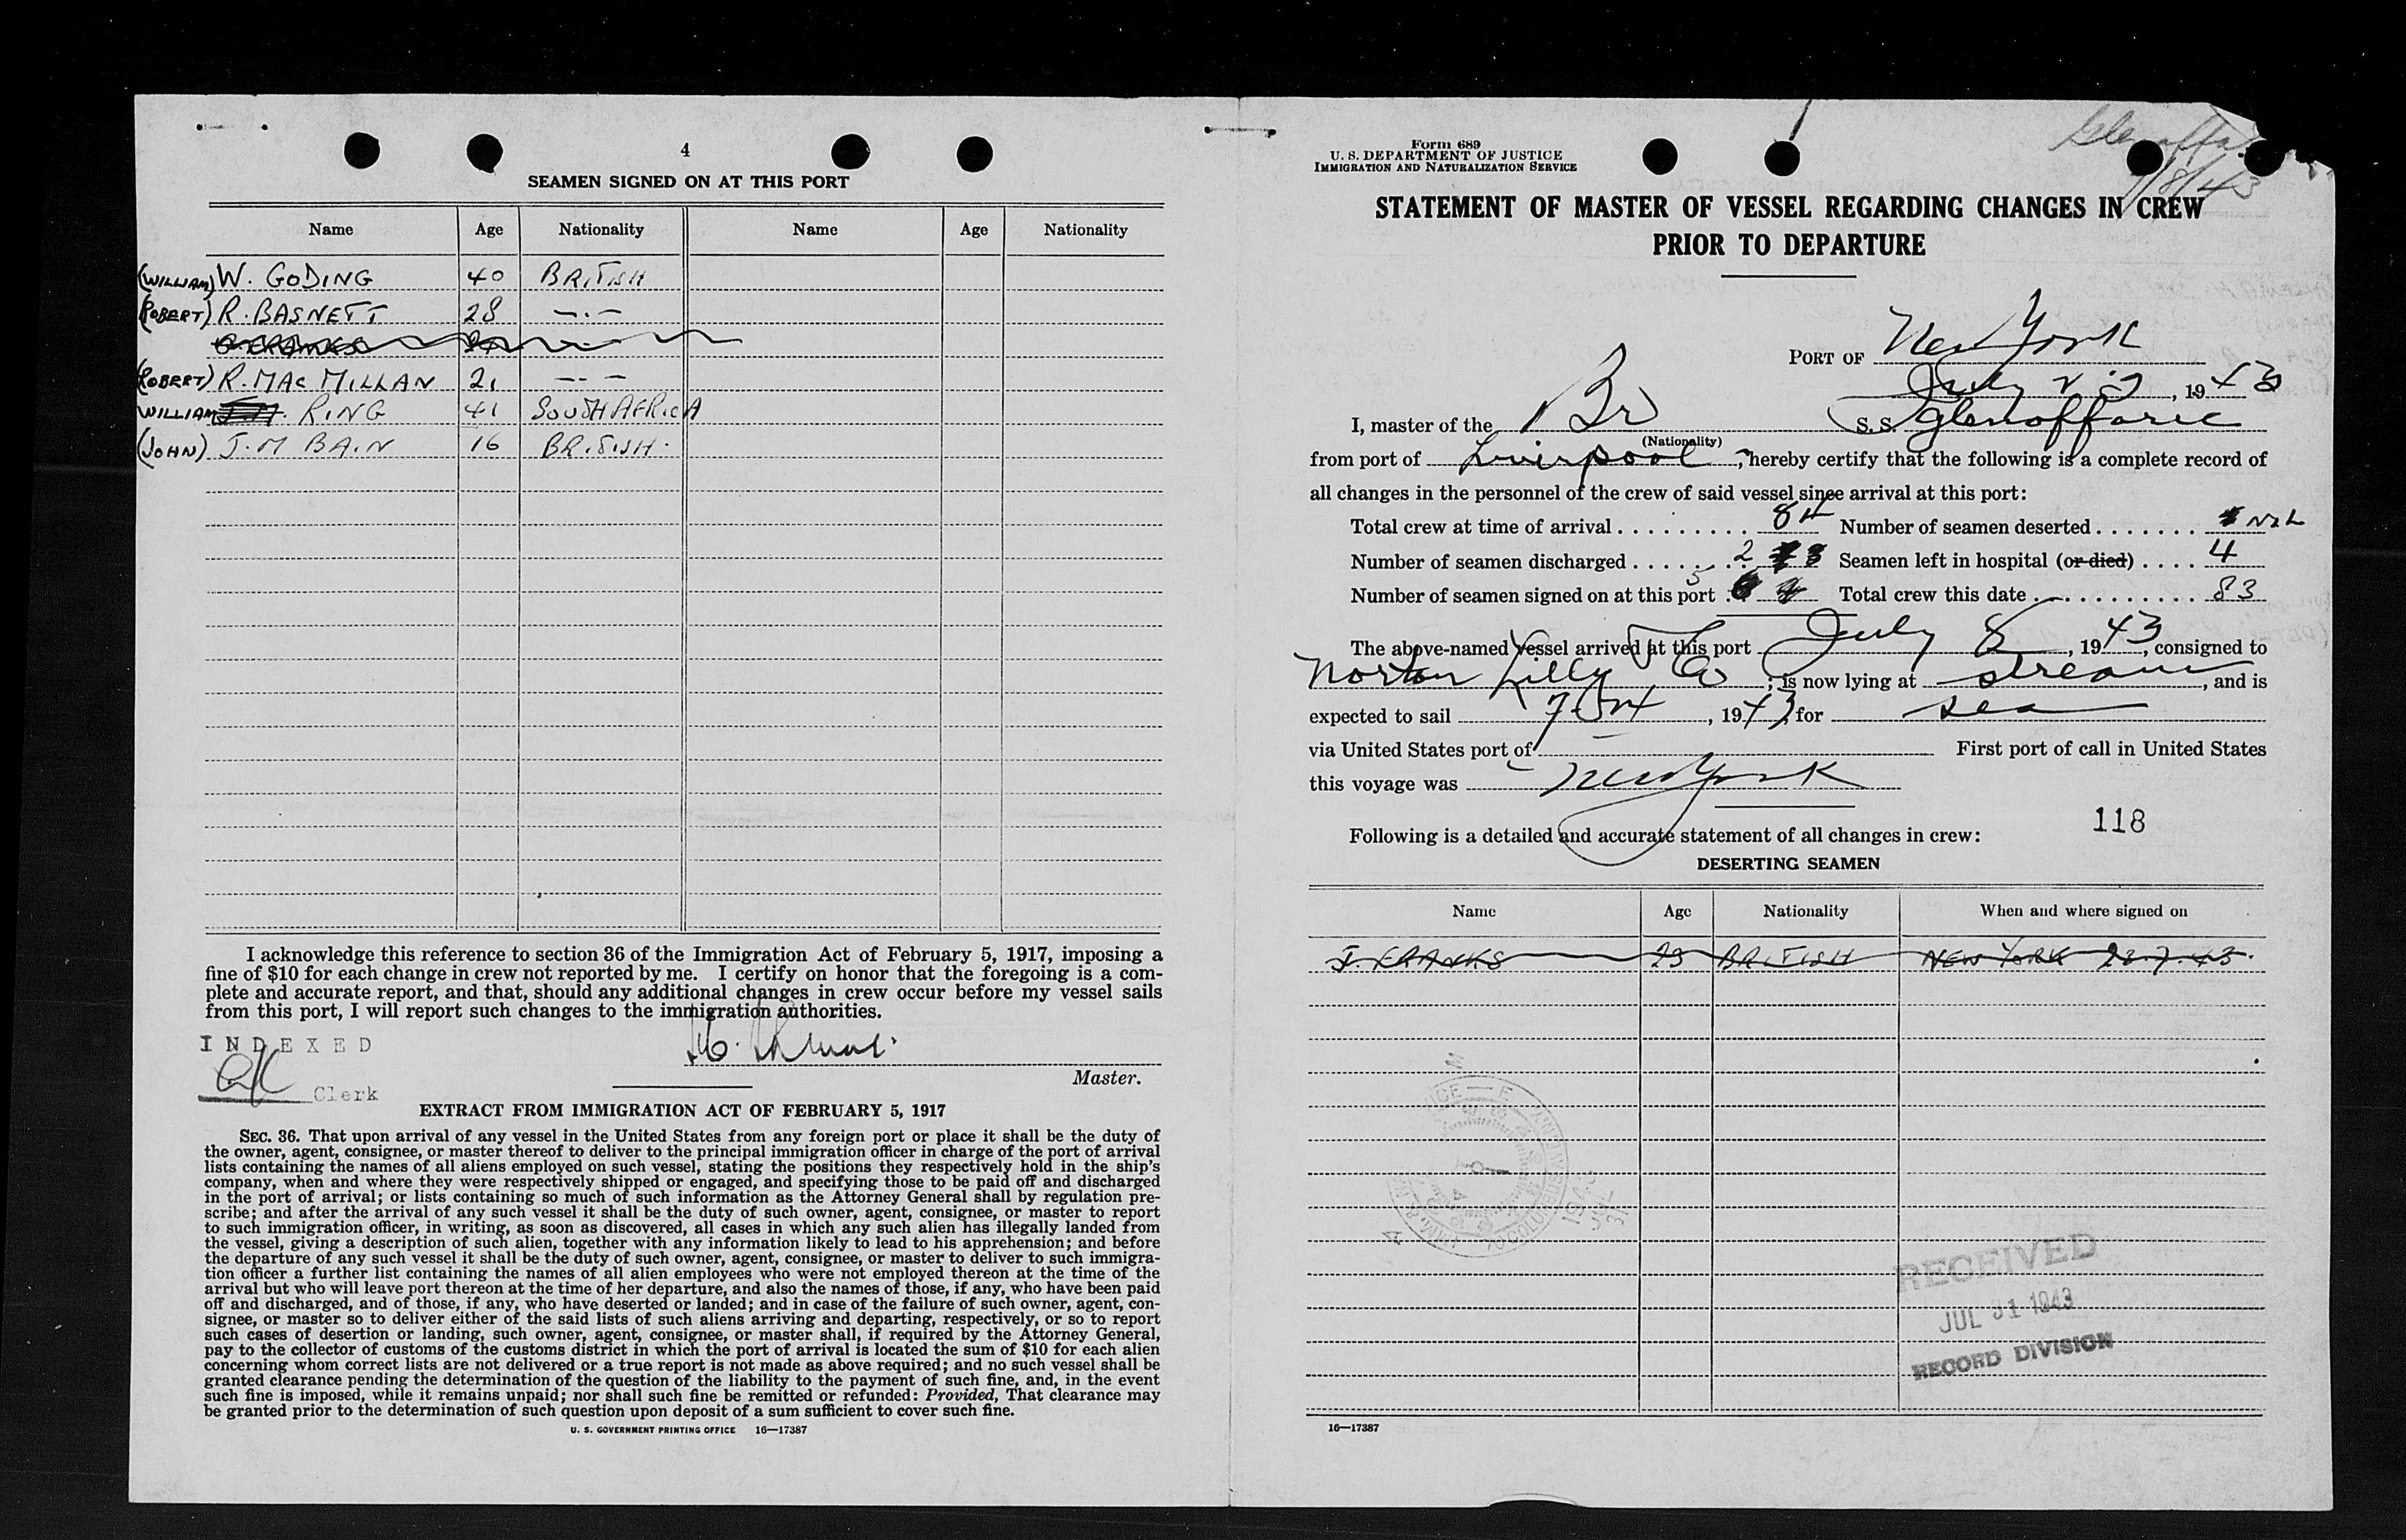 4
SEAMEN SIGNED ON AT THIS PORT
Name Age Nationality Name Age Nationality
(WILLIAM) W. GODING 40 BRITISH
(ROBERT) R. BASNETT 28 —·—
(ROBERT) R. MAC MILLAN 21 —·—
WILLIAM RING 41 SOUTH AFRICA
(JOHN) J. M BAIN 16 BRITISH.
I acknowledge this reference to section 36 of the Immigration Act of February 5, 1917, imposing a
fine of $10 for each change in crew not reported by me. I certify on honor that the foregoing is a com-
plete and accurate report, and that, should any additional changes in crew occur before my vessel sails
from this port, I will report such changes to the immigration authorities.
INDEXED
Clerk
Master.
EXTRACT FROM IMMIGRATION ACT OF FEBRUARY 5, 1917
SEC. 36. That upon arrival of any vessel in the United States from any foreign port or place it shall be the duty of
the owner, agent, consignee, or master thereof to deliver to the principal immigration officer in charge of the port of arrival
lists containing the names of all aliens employed on such vessel, stating the positions they respectively hold in the ship's
company, when and where they were respectively shipped or engaged, and specifying those to be paid off and discharged
in the port of arrival; or lists containing so much of such information as the Attorney General shall by regulation pre-
scribe; and after the arrival of any such vessel it shall be the duty of such owner, agent, consignee, or master to report
to such immigration officer, in writing, as soon as discovered, all cases in which any such alien has illegally landed from
the vessel, giving a description of such alien, together with any information likely to lead to his apprehension; and before
the departure of any such vessel it shall be the duty of such owner, agent, consignee, or master to deliver to such immigra-
tion officer a further list containing the names of all alien employees who were not employed thereon at the time of the
arrival but who will leave port thereon at the time of her departure, and also the names of those, if any, who have been paid
off and discharged, and of those, if any, who have deserted or landed; and in case of the failure of such owner, agent, con-
signee, or master so to deliver either of the said lists of such aliens arriving and departing, respectively, or so to report
such cases of desertion or landing, such owner, agent, consignee, or master shall, if required by the Attorney General,
pay to the collector of customs of the customs district in which the port of arrival is located the sum of $10 for each alien
concerning whom correct lists are not delivered or a true report is not made as above required; and no such vessel shall be
granted clearance pending the determination of the question of the liability to the payment of such fine, and, in the event
such fine is imposed, while it remains unpaid; nor shall such fine be remitted or refunded: Provided, That clearance may
be granted prior to the determination of such question upon deposit of a sum sufficient to cover such fine.
U. S. GOVERNMENT PRINTING OFFICE 16—17387
Form 689
U. S. DEPARTMENT OF JUSTICE
IMMIGRATION AND NATURALIZATION SERVICE
7/8/43
STATEMENT OF MASTER OF VESSEL REGARDING CHANGES IN CREW
PRIOR TO DEPARTURE
PORT OF New York
July 23, 1943
I, master of the Br S. S. Glenoffaric
(Nationality)
from port of Liverpool, hereby certify that the following is a complete record of
all changes in the personnel of the crew of said vessel since arrival at this port:
Total crew at time of arrival 84 Number of seamen deserted NIL
Number of seamen discharged 2 Seamen left in hospital (or died) 4
Number of seamen signed on at this port 5 Total crew this date 83
The above-named vessel arrived at this port July 8, 1943, consigned to
Norton Lilly Co; is now lying at stream, and is
expected to sail , 1943, for sea
via United States port of — First port of call in United States
this voyage was New York
118
Following is a detailed and accurate statement of all changes in crew:
DESERTING SEAMEN
Name Age Nationality When and where signed on
J. FRANKS 23 BRITISH NEW YORK 23.7.43.
RECEIVED
JUL 31 1943
RECORD DIVISION
16—17387